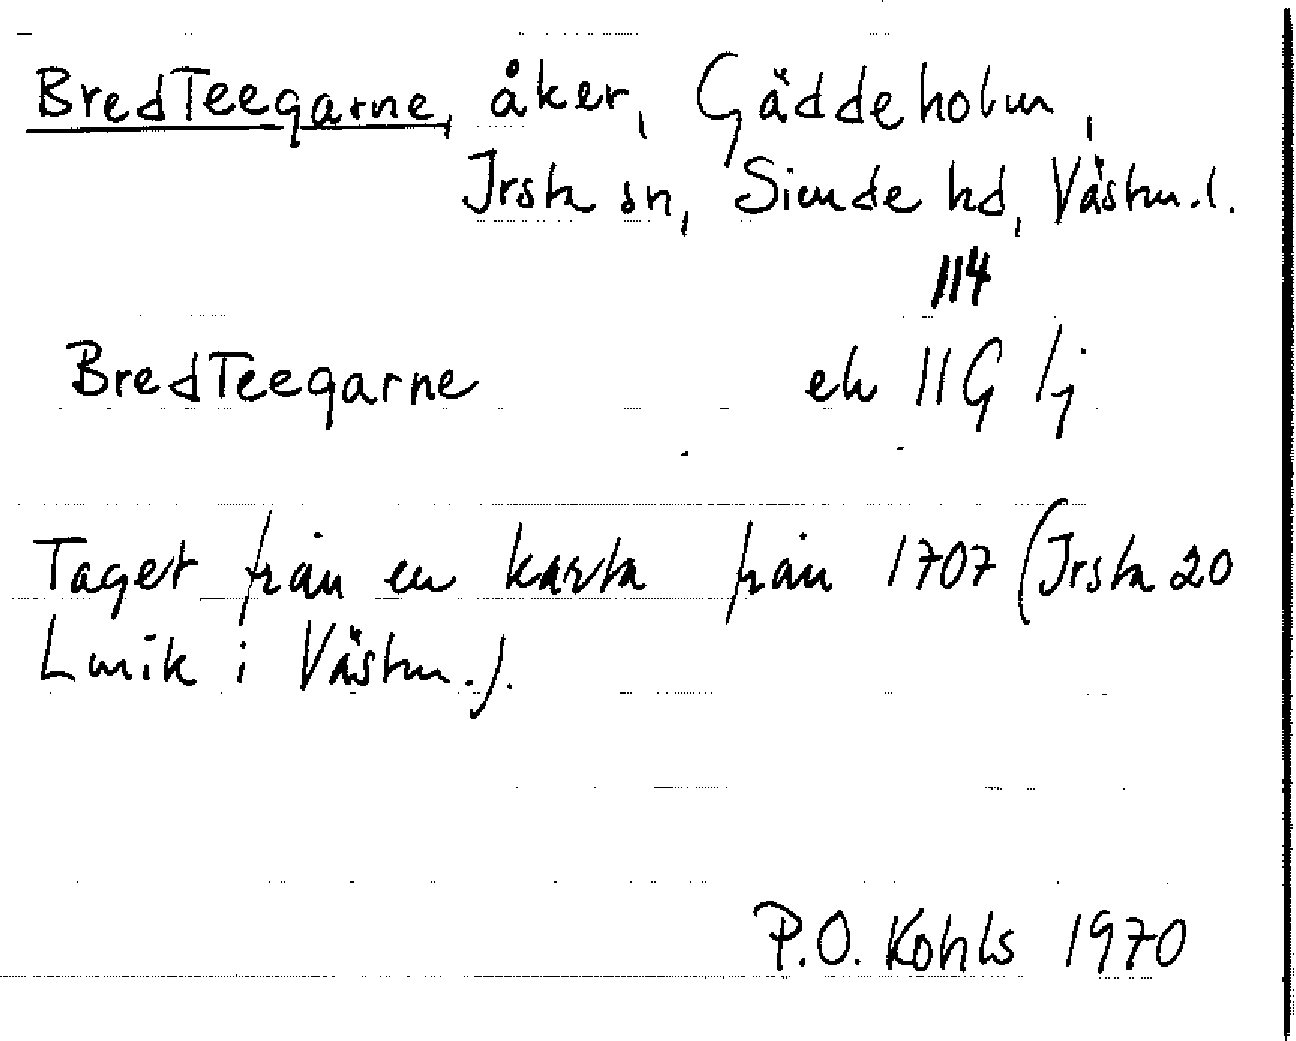 BredTeegarne, åker, Gäddeholm,
Irsta sn, Siende hd, Västm.l.
114
BredTeegarne ek 11G 1j
Taget från en karta från 1707 (Irsta 20
Lmik i Västm.).
P.O. Kohls 1970